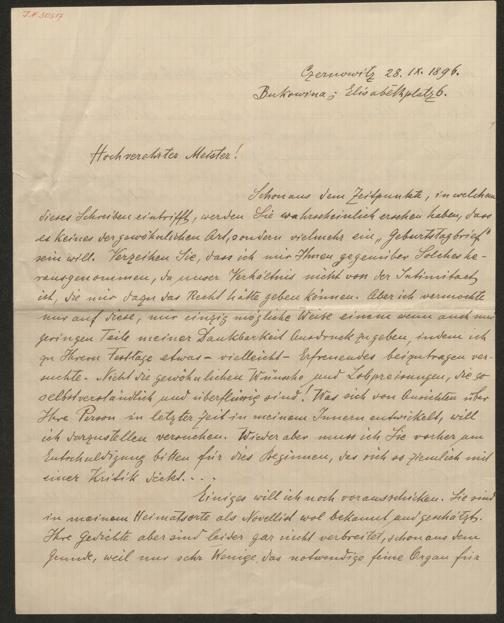 J.N. 50517
Czernowitz 28. IX. 1896.
Bukowina; Elisabethplatz 6.
Hochverehrter Meister!
Schon aus dem Zeitpunkte, in welchem
dieses Schreiben eintrifft, werden Sie wahrscheinlich ersehen haben, dass
es keines der gewöhnlichen Art, sondern vielmehr ein „Geburtstagbrief"
sein will. Verzeihen Sie, dass ich mir Ihnen gegenüber Solches he-
rausgenommen, da unser Verhältnis nicht von der Intimitaet
ist, die mir dazu das Recht hätte geben können. Aber ich vermochte
nur auf diese, mir einzig mögliche Weise einem wenn auch nur
geringen Teile meiner Dankbarkeit Ausdruck zu geben, indem ich
zu Ihrem Festtage etwas – vielleicht – Erfreuendes beizutragen ver-
suchte. Nicht die gewöhnlichen Wünsche und Lobpreisungen, die so
selbstverständlich und überflüssig sind! Was sich von Ansichten über
Ihre Person in letzter Zeit in meinem Innern entwickelt, will
ich darzustellen versuchen. Wieder aber muss ich Sie vorher um
Entschuldigung bitten für dies Beginnen, das sich so ziemlich mit
einer Kritik deckt. . . .
Einiges will ich noch vorausschicken. Sie sind
in meinem Heimatsorte als Novellist wol bekannt und geschätzt.
Ihre Gedichte aber sind leider gar nicht verbreitet, schon aus dem
Grunde, weil nur sehr Wenige das notwendige feine Organ für